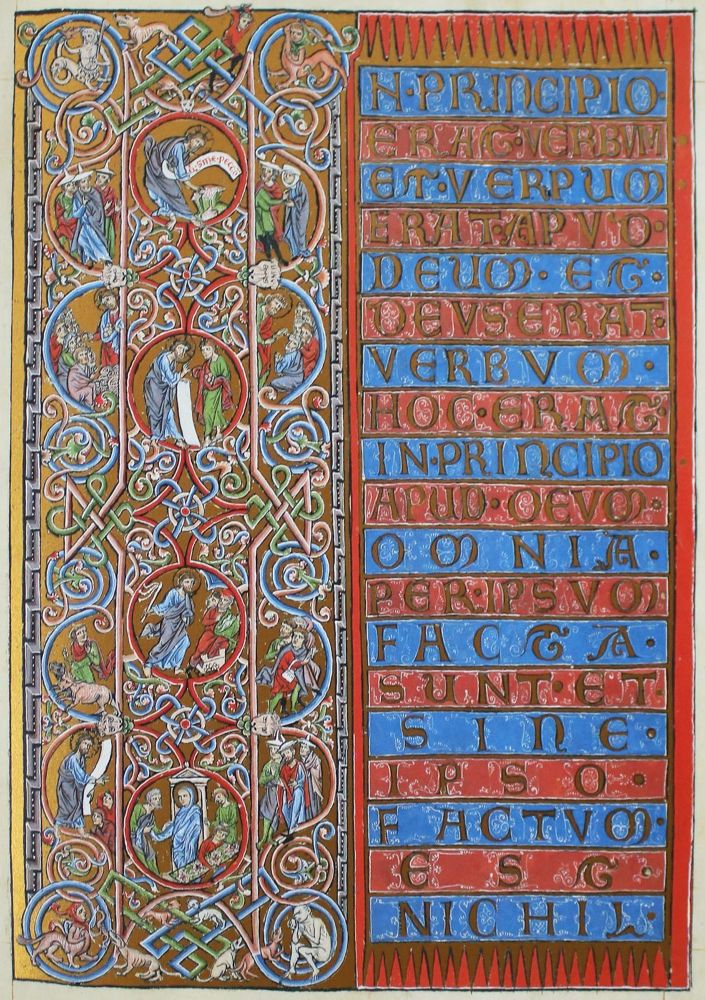 N·PRINCIPIO·
ERAT·VERBUM
ET·VERPUM
ERAT·APVD·
DEUM·ET
DEVS ERAT·
VERBVM·
HOC·ERAT·
IN·PRINCIPIO
APUD·DEVM·
OMNIA·
PER·IPSVM
FACTA·
SUNT·ET·
SINE·
IPSO·
FACTVM·
EST
NICHIL·